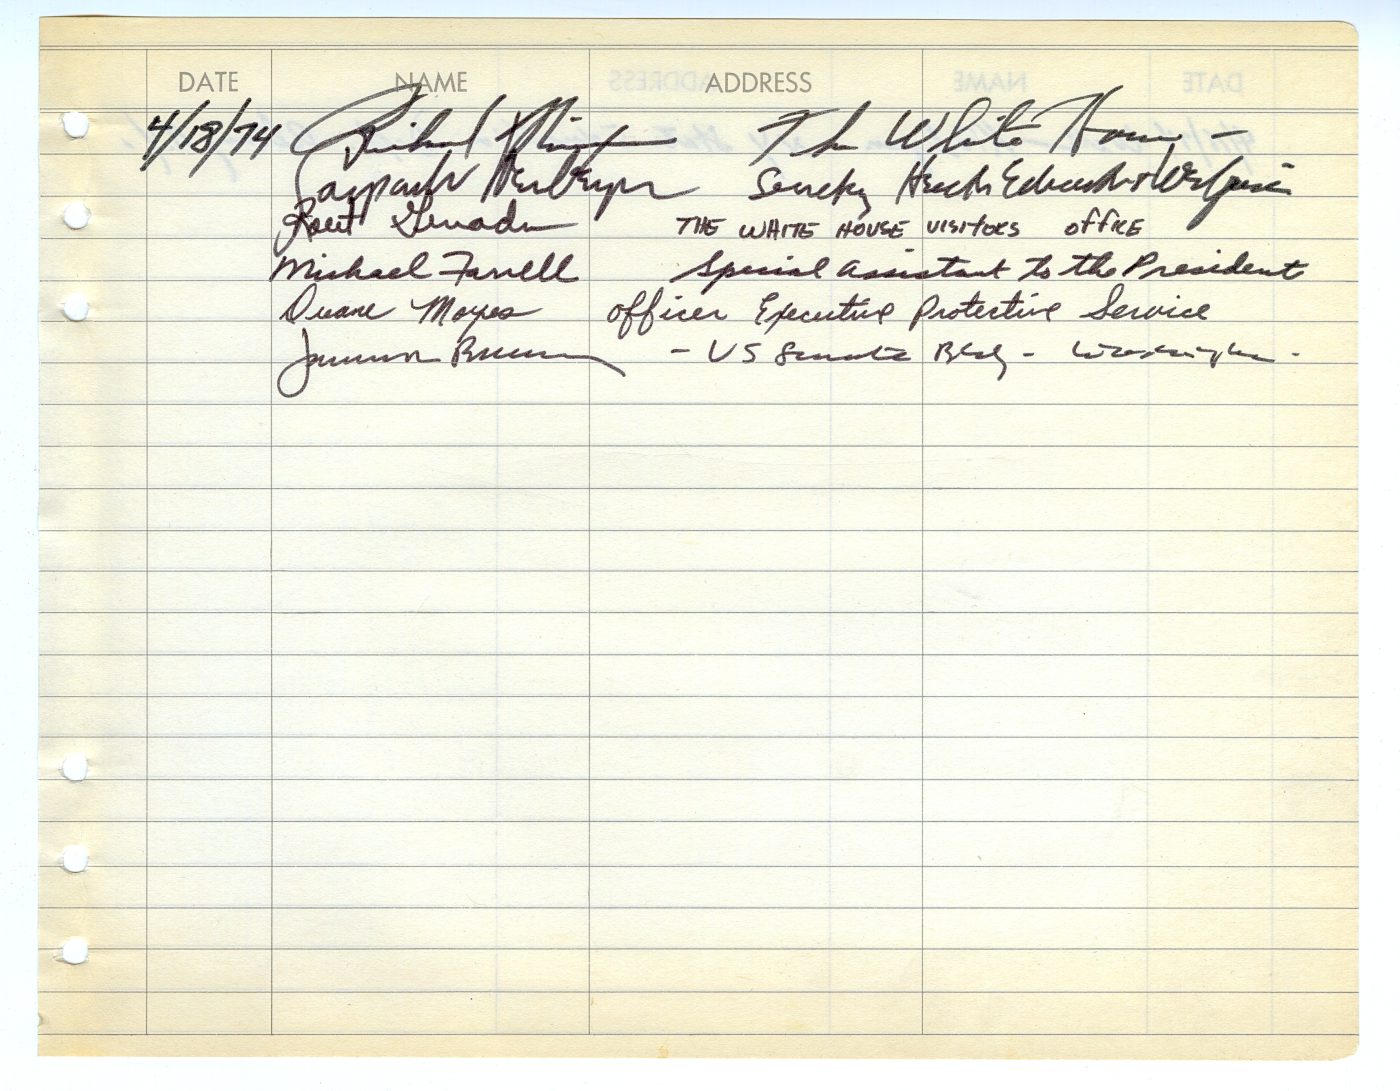 DATE NAME ADDRESS
4/18/74 Richard Nixon The White House
Caspar W Weinberger Secretary Health Education & Welfare
THE WHITE HOUSE VISITORS OFFICE
Michael Farrell Special Assistant to the President
Duane Moyes Officer Executive Protective Service
- US Senate Bldg - Washington -